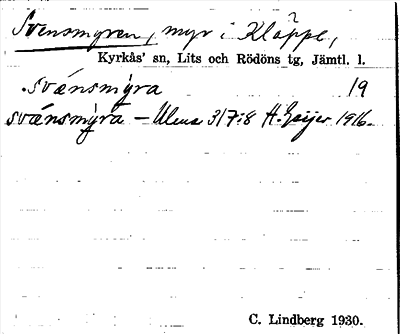 Svensmyren, myr i Kläppe,
Kyrkås' sn, Lits och Rödöns tg, Jämtl. l.
.svǽnsmỳra 19
svǽnsmỳra – Ulma 317:8 H. Geijer 1916.
C. Lindberg 1930.